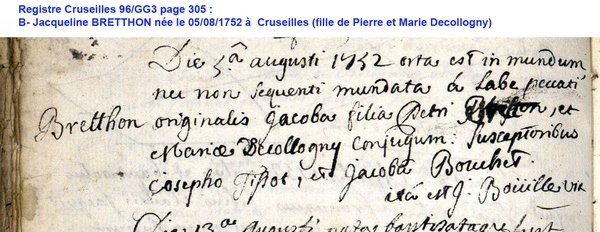 Registre Cruseilles 96/GG3 page 305 :
B- Jacqueline BRETTHON née le 05/08/1752 à Cruseilles (fille de Pierre et Marie Decollogny)
Die 5ᵃ augusti 1752 orta est in mundum
nec non sequenti mundata á labe peccati
Bretthon originalis Jacoba filia Petri et
Mariæ Decollogny conjugum: susceptoribus
Josepho Tissot, et Jacoba Bouchet.
ita est J. Bouille vic
Die 13ᵃ Augusti